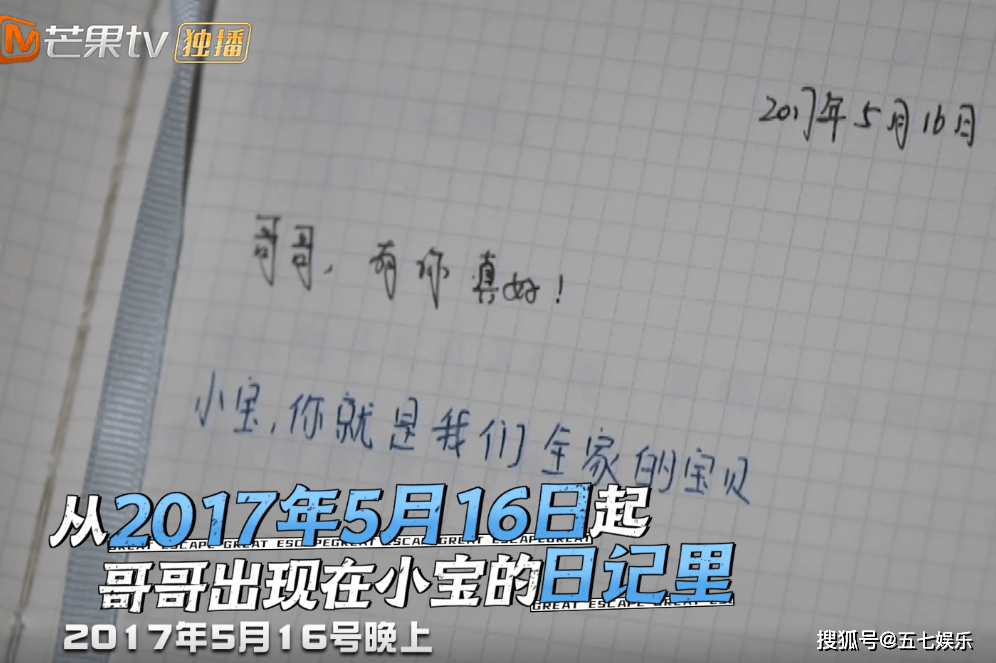 芒果tv 独播
2017年5月16日
哥哥，有你真好！
小宝，你就是我们全家的宝贝
从2017年5月16日起
GREAT ESCAPE GREAT ESCAPE GREAT ESCAPE GREAT ESCAPE
哥哥出现在小宝的日记里
GREAT ESCAPE GREAT ESC
2017年5月16号晚上
搜狐号@五七娱乐